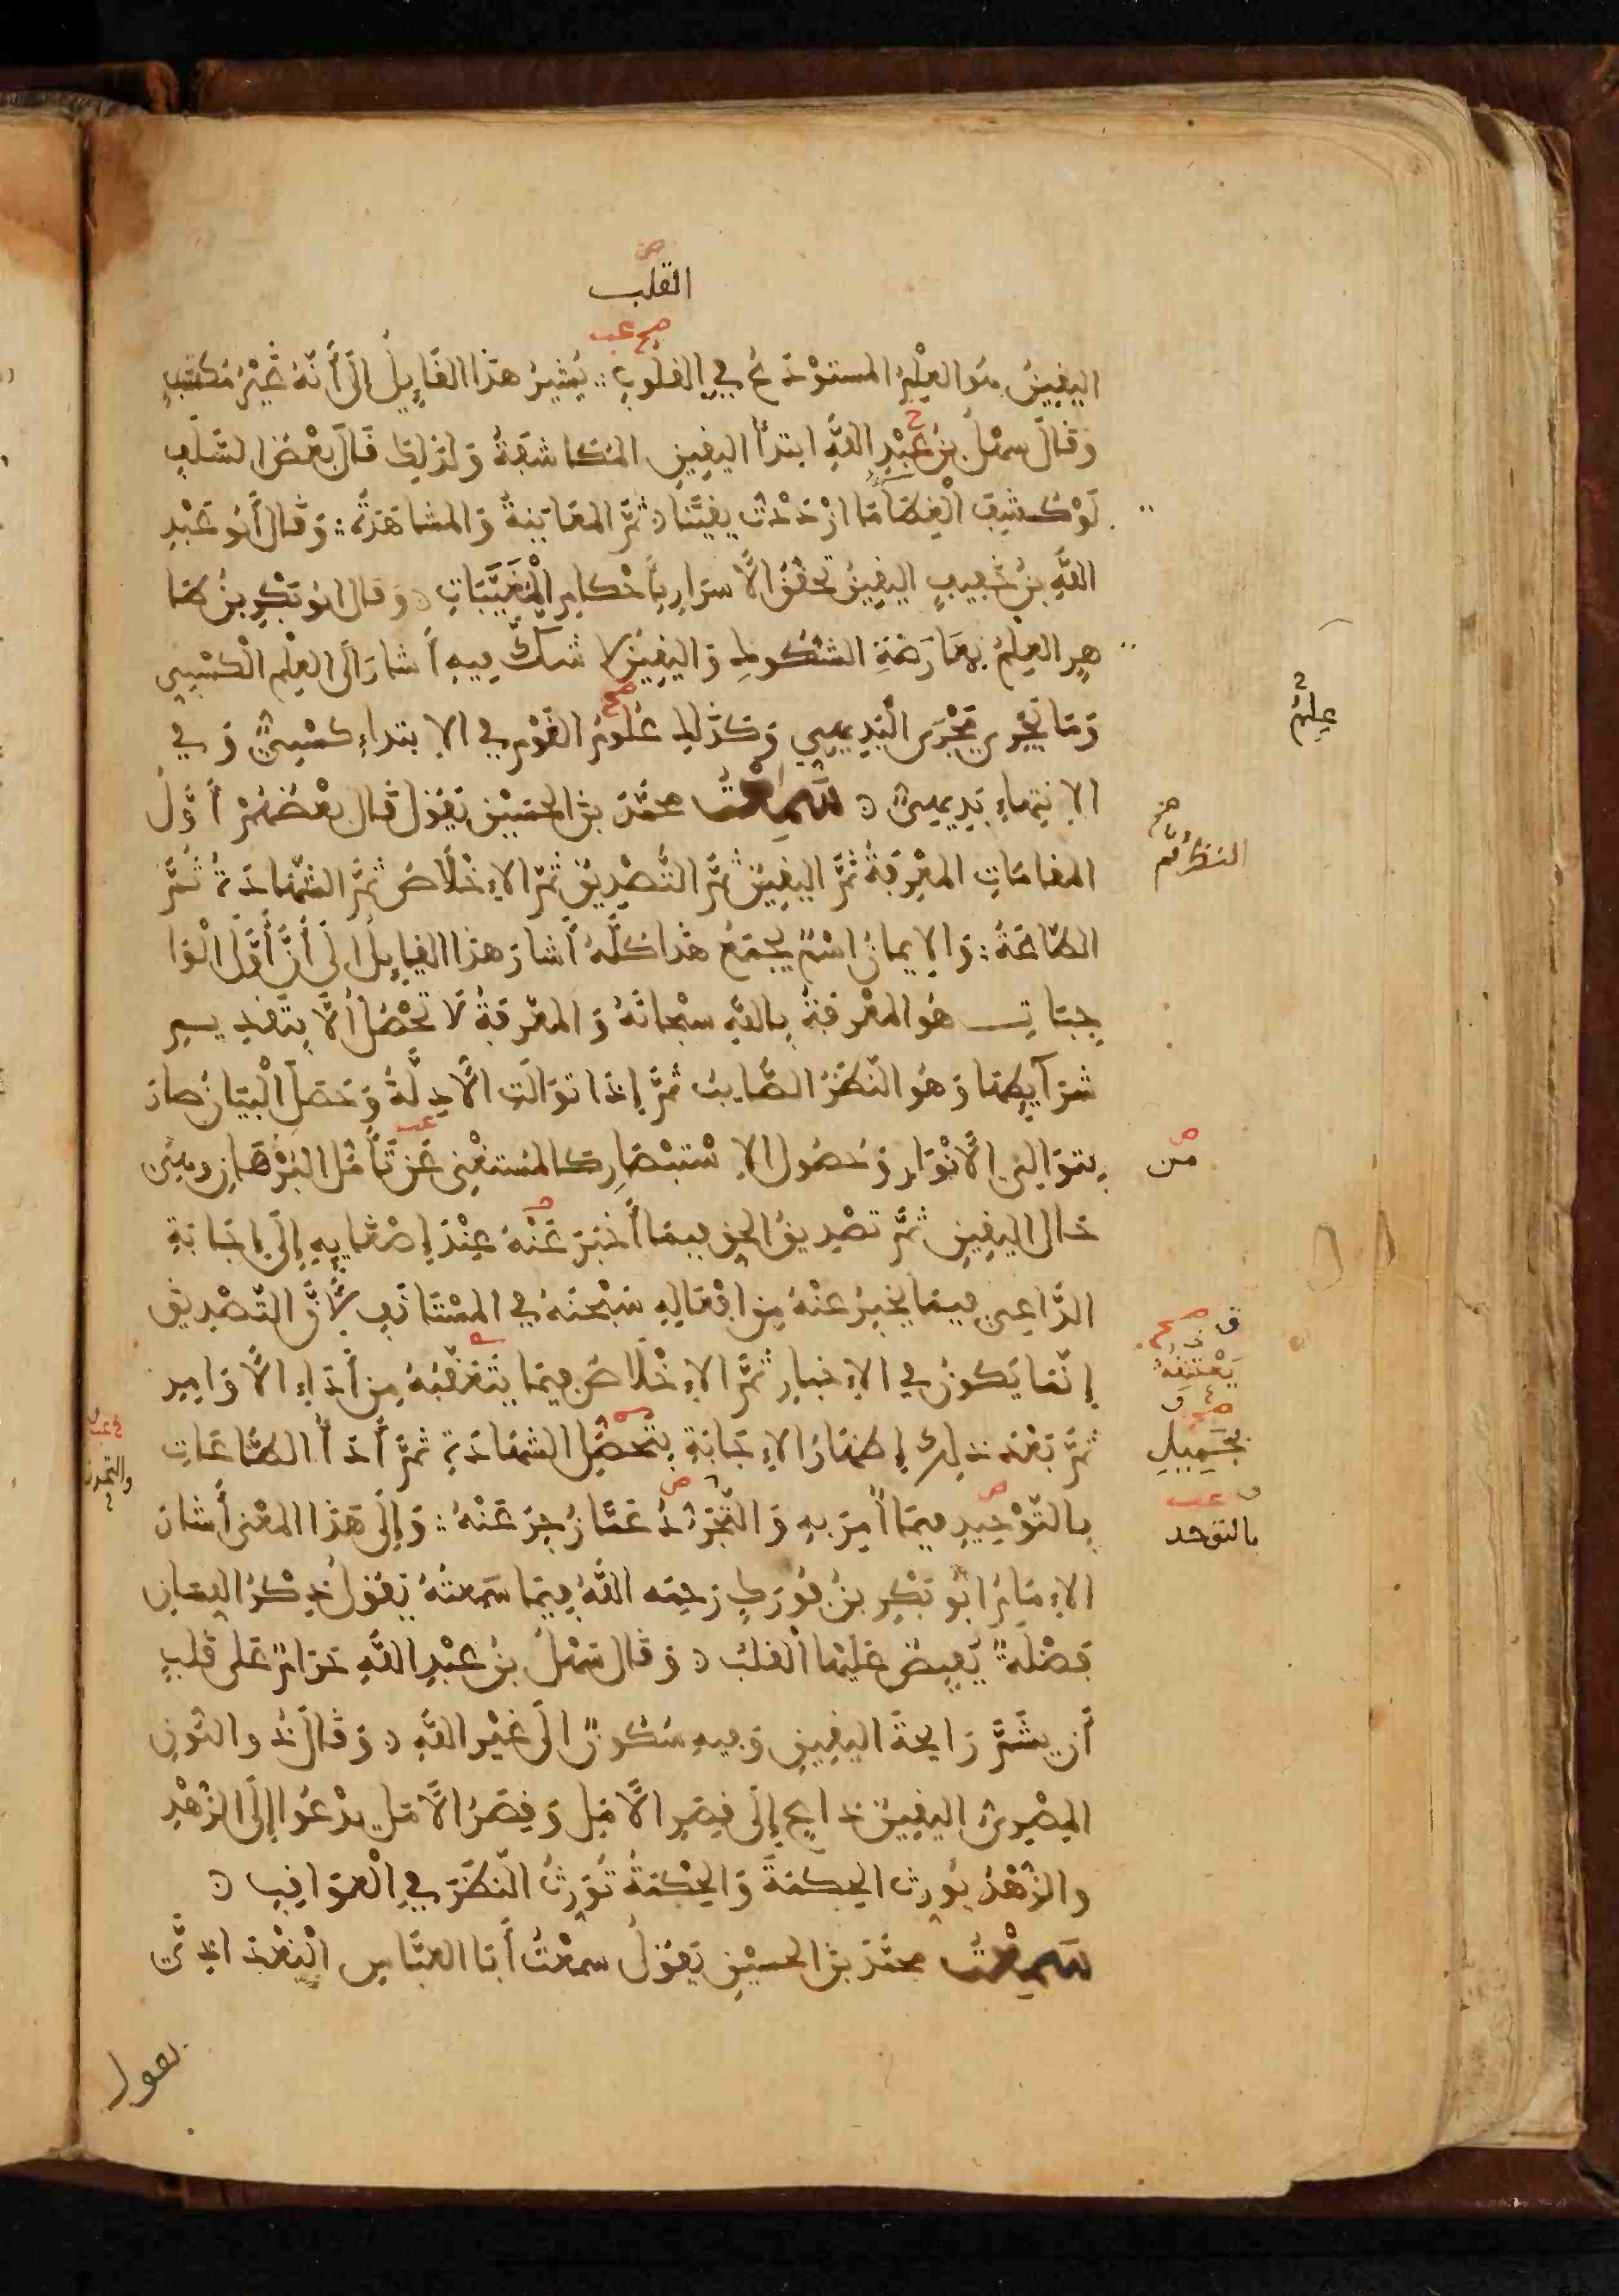 القلب
اليقينُ هُوَ العِلْمُ المستوْدَعُ في القلُوبِ يُشِيرُ هَذا القَايِلُ إلَى أَنَّهُ غَيْرُ مُكْتَسَبٍ
وَقَالَ سهْلُ بنُ عَبْدِ اللَّهِ ابتدأُ اليقينِ المُكَاشَفَةُ وَلذلِكَ قَالَ بعْضُ السَّلَفِ
لَوْ كُشِفَ الْغِطَا مَا ازْدَدْتُ يقينًا ثمَّ المعَايَنةُ وَالمشاهَدَةُ وَقَالَ أَبُو عَبْدِ
اللَّهِ بنُ خَفِيفٍ اليقينُ تحقُّقُ الأَسرَارِ بأَحْكامِ الْمُغَيَّبَاتِ وَقال ابُو بَكْرِ بنُ طَا
هِرِ العِلْمُ بِمُعَارَضَةِ الشكُوكِ وَاليقينُ لا شكَّ فِيهِ أَشارَ الَى العِلْمِ الْكَسْبِيِّ
وَمَا يَجْرِي مَجْرَى الْبَدِيهِيِّ وَكَذَلِكَ عُلُومُ القَوْمِ في الابتداءِ كَسْبِيٌّ وَفي
الانتِهاءِ بَدِيهِيٌّ سَمِعْتُ محمَّدَ بنَ الحسَيْنِ يَقُولُ قَالَ بعْضُهُمْ أَوَّلُ
المقامَاتِ المعْرِفَةُ ثمَّ اليقينُ ثمَّ التَّصْدِيقُ ثمَّ الإِخْلَاصُ ثمَّ الشَّهَادَةُ ثُمَّ
الطَّاعَةُ وَالإيمانُ اسْمٌ يجْمَعُ هَذا كلَّهُ أَشَارَ هَذا القايلُ الَى أَنَّ أَوَّلَ الْوَا
جِبَاتِ هُوَ المعْرِفَةُ بِاللَّهِ سبْحانَهُ وَالمعْرِفَةُ لَا تَحْصُلُ الَّا بِتَقْدِيمِ
شَرَايِطِهَا وَهُوَ النَّظَرُ الصَّايِبُ ثمَّ إِذَا تَوَالَتِ الأَدِلَّةُ وَحَصَلَ الْبَيَانُ صارَ
بتوَالي الأَنْوَارِ وَحُصُولِ الاسْتِبْصَارِ كَالمُسْتَغْنِي عَنْ تَأَمُّلِ البُرْهَانِ وهُوَ
حَالُ اليقينِ ثمَّ تصْدِيقُ الحقِ فيمَا أَخْبَرَ عَنْهُ عِنْدَ إِصْغَايِهِ إِلَى إِجَابَةِ
الدَّاعِي فيمَا يُخْبِرُ عنْهُ مِن افْعَالِهِ سُبْحنَهُ في المُسْتَأْنَفِ لأَنَّ التَّصْدِيقَ
إِنَّمَا يَكُونُ في الإِخبارِ ثمَّ الإِخْلَاصُ فِيمَا يَتَعَقَّبُهُ مِن أَدَاءِ الأَوَامِرِ
ثمَّ بَعْدَ ذلِكَ إِظْهَارُ الإِجَابَةِ بِتَحَصُّلِ الشهَادَةِ ثمَّ أَدَأُ الطَّاعَاتِ
بالتَّوْحِيدِ فِيمَا أُمِرَ بِهِ وَالتَّجَرُّدُ عَمَّا زُجِرَ عَنْهُ وَإِلَى هَذَا المعْنى أَشَارَ
الإِمَامُ أَبُو بَكْرِ بنُ فُورَكٍ رَحِمَه اللَّهُ فِيمَا سَمعتُهُ يَقُولُ ذِكْرُ اللِسَانِ
فَضْلَةٌ يَفِيضُ عَلَيْهَا الْقَلْبُ وَقَالَ سَهْلُ بنُ عبْدِ اللَّهِ حَرَامٌ عَلَى قَلْبٍ
أَن يشَمَّ رَايحَةَ اليقينِ وَفيهِ سُكُونٌ الَى غيْرِ اللَّهِ وَقَالَ ذُو النُّونِ
المِصْرِيُّ اليقينُ دَاعٍ إِلَى قِصَرِ الأَمَلِ وَقِصَرُ الأَمَلِ يدْعُوا إِلَى الزُّهْدِ
والزُّهْدُ يُورِثُ الحِكمَةَ وَالحِكْمَةُ تُورِثُ النَّظَرَ في الْعَوَاقِبِ
سَمِعْتُ محمَّدَ بنَ الحسيْنِ يَقُولُ سمعْتُ أَبَا العبَّاسِ الْبغْدَادِيَّ
علم
من
يعتقبه
بجميل
بالتوحد
يقول